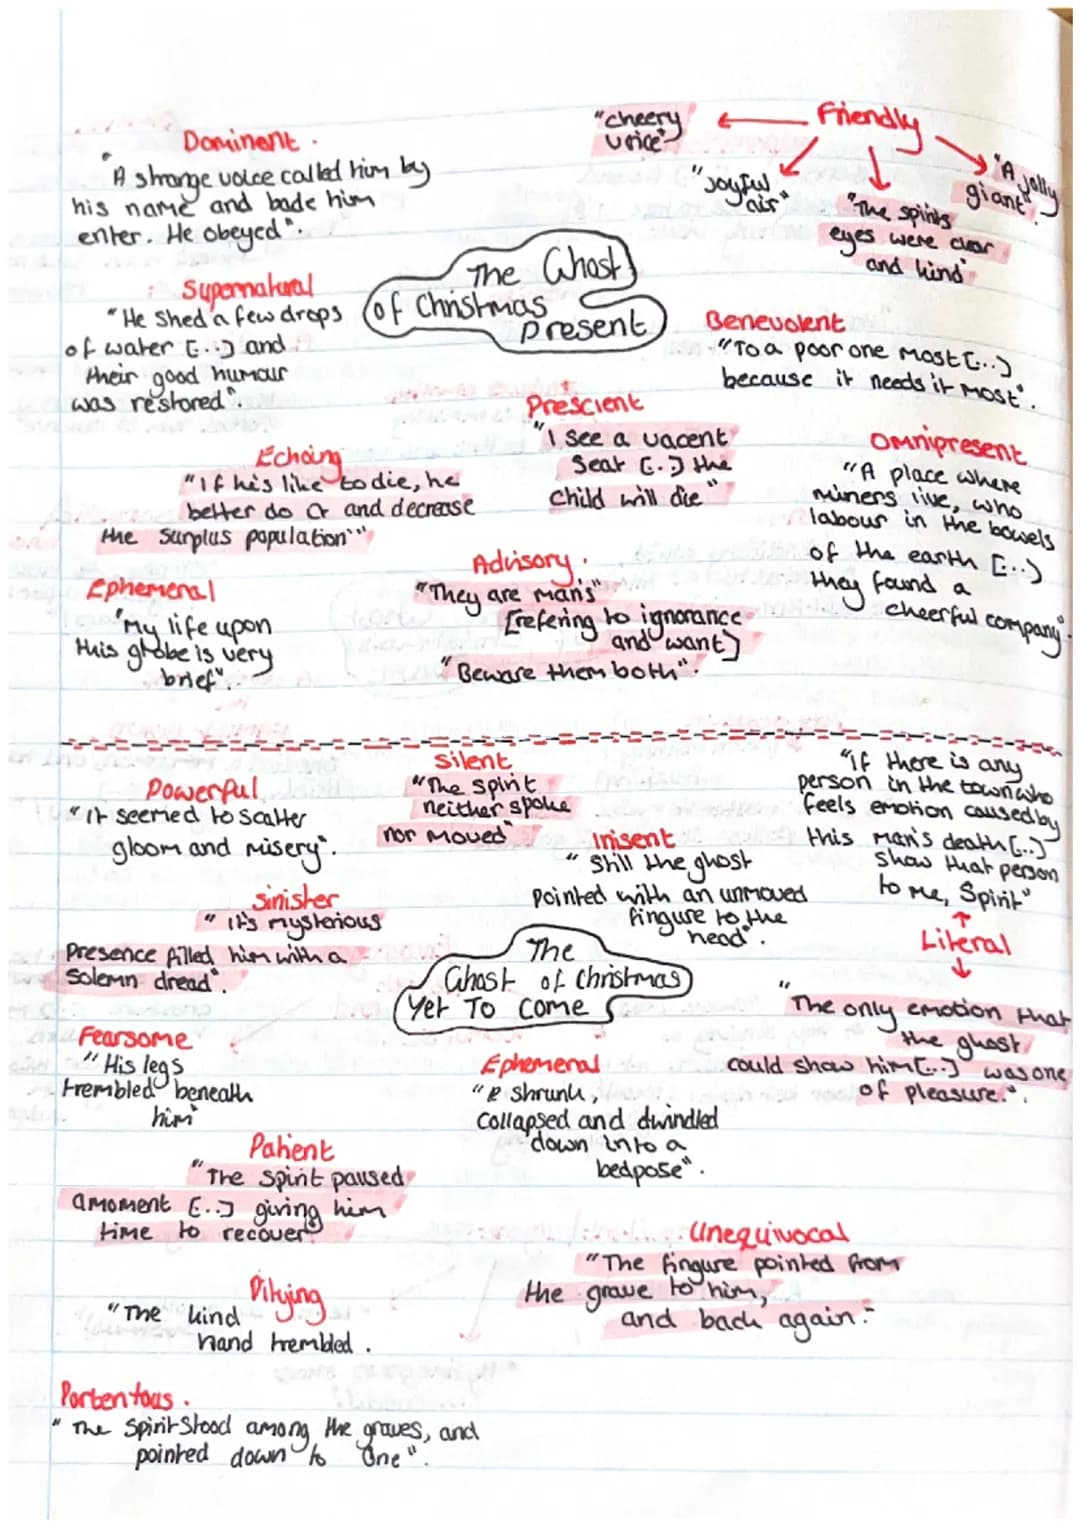 Dominant.
"A strange voice called him by
his name and bade him
enter. He obeyed".
"cheery
voice"
Friendly
"Joyful
air"
"The spirits
eyes were clear
and kind"
"A jolly
giant"
The Ghost
of Christmas
present
Supernatural
"He shed a few drops
of water [...] and
their good humour
was restored".
Benevolent
"To a poor one most [...]
because it needs it most".
Prescient
"I see a vacent
seat [..] the
child will die"
Echoing
"If he's like to die, he
better do it and decrease
the surplus population"
Omnipresent
"A place where
miners live, who
labour in the bowels
of the earth [...]
they found a
cheerful company"
Ephemeral
"My life upon
this globe is very
brief".
Advisory.
"They are man's"
[refering to ignorance
and want]
"Beware them both".
Powerful
"it seemed to scatter
gloom and misery".
Silent
"The spirit
neither spoke
nor moved"
Inisent
"Still the ghost
pointed with an unmoved
fingure to the
head".
"if there is any
person in the town who
feels emotion caused by
this man's death [...]
show that person
to me, Spirit"
Literal
"The only emotion that
the ghost
could show him [...] was one
of pleasure.".
Sinister
"it's mysterious
presence filled him with a
solemn dread".
The
Ghost of Christmas
Yet To Come
Fearsome
"His legs
trembled beneath
him"
Ephemeral
"it shrunk,
collapsed and dwindled
down into a
bedpose".
Patient
"The spirit paused
a moment [...] giving him
time to recover"
Unequivocal
"The fingure pointed from
the grave to him,
and back again."
Pitying
"The kind
hand trembled.
Portentous.
"The Spirit stood among the graves, and
pointed down to One".